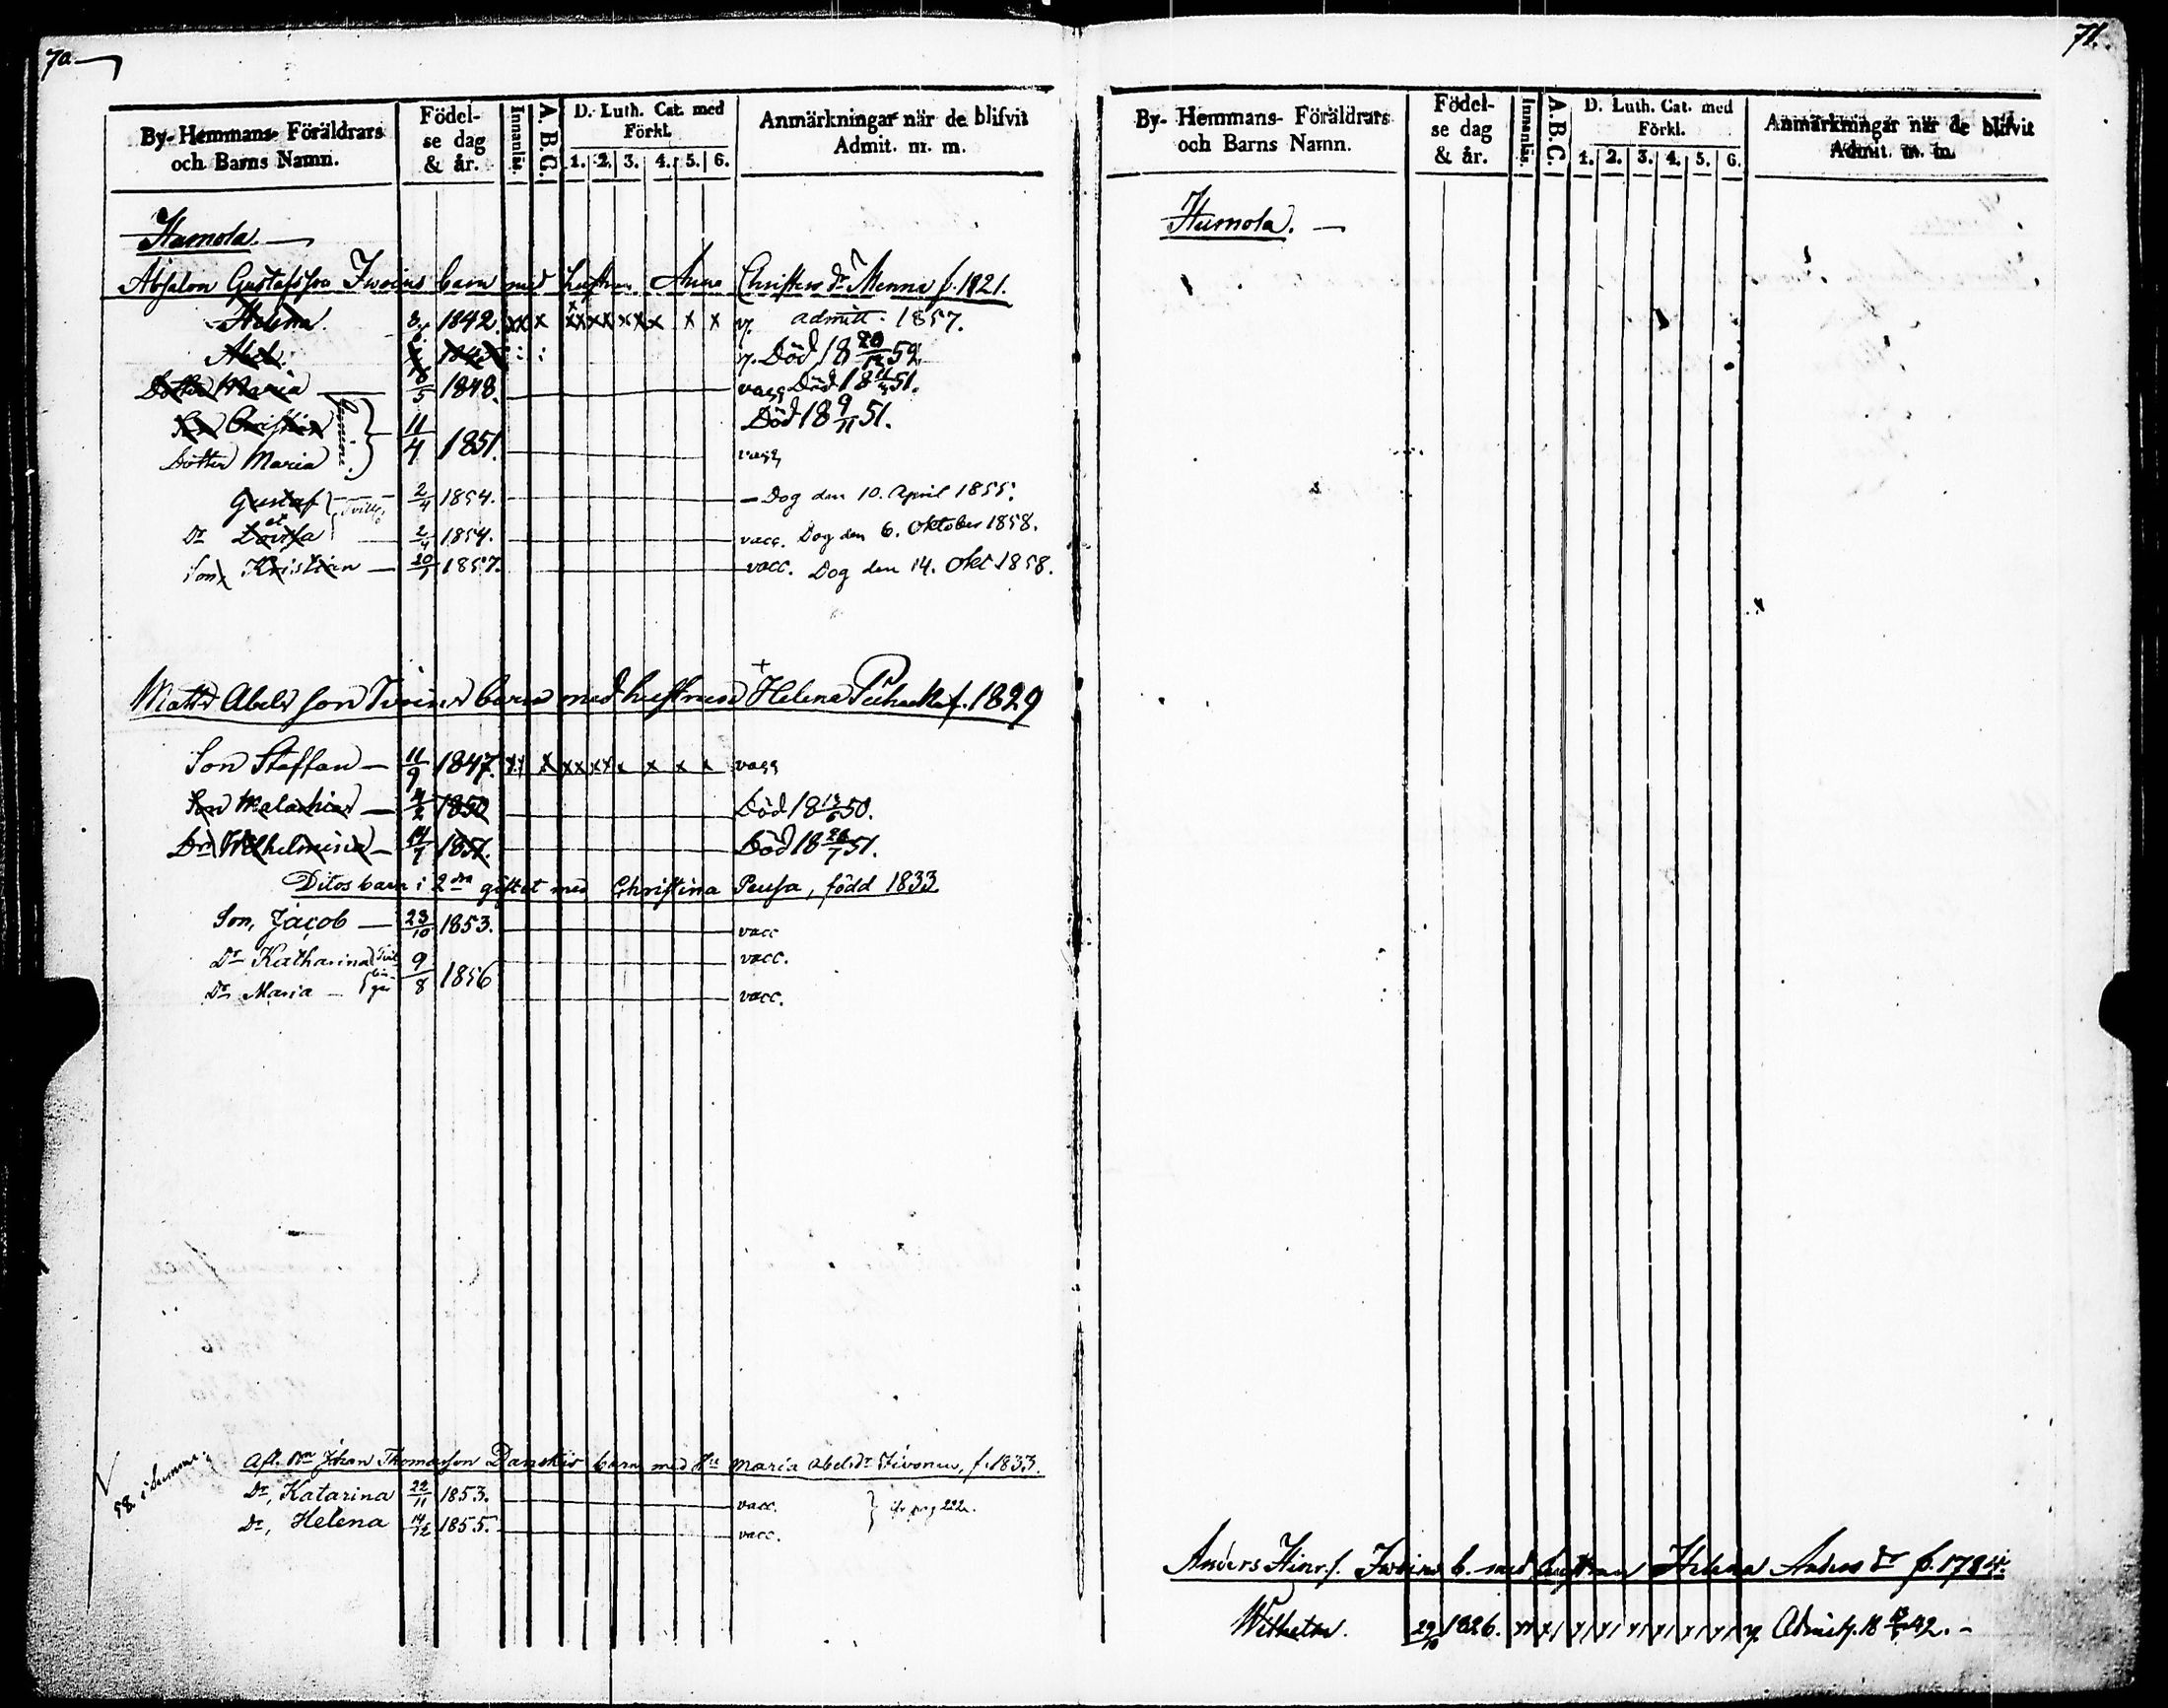 70
By- Hemmans- Föräldrars och Barns Namn.
Födel-se dag & år.
Innanläs.
A. B. C.
D. Luth. Cat. med Förkl.
1. 2. 3. 4. 5. 6.
Anmärkningar när de blifvit Admit. m. m.
Humola.
Absalon Gustafsson Iwoins barn med hustrun Anna Christers dr Menna f. 1821.
Helena. 1842. xx x xx xx xx x x x v. admitt. 1857.
Abel. v. Död 18 20/12 52
Dotter Maria 6/5 1848. vacc Död 18 51.
Son Christian 11/4 1851. Död 18 9/11 51.
Dotter Maria vacc
Gustaf 2/4 1854. Dog den 10. April 1855.
Dr Lovisa 2/4 1854. vacc. Dog den 6. Oktober 1858.
Son Kristian 20/1 1857. vacc. Dog den 14. Okt 1858.
Matts Abelsson Iwoins barn med hustrun Helena f. 1829
Son Staffan 11/9 1847. xx x xx xx x x x x vacc
Son Malachias 4/2 1850 Död 18 50.
Dr Wilhelmina 14/7 1851. Död 18 26/7 51.
Ditos barn i 2dra giftet med Christina Peusa, född 1833
Son, Jacob 23/10 1853. vacc
Dr Katharina 9/8 1856 vacc.
Dr Maria vacc.
58. i Summa.
Johan Thomasson Danskis barn med Hu Maria Abelsdr f. 1833.
Dr, Katarina 22/11 1853. vacc.
Dr, Helena 14/12 1855. vacc.
71.
By- Hemmans- Föräldrars och Barns Namn.
Födel-se dag & år.
Innanläs.
A. B. C.
D. Luth. Cat. med Förkl.
1. 2. 3. 4. 5. 6.
Anmärkningar när de blifvit Admit. m. m.
Humola.
Anders Hinr.s. Iwoins b. med hustrun Helena Anders dr f. 1784.
Wilhelm. 29/10 1826. v. 42.